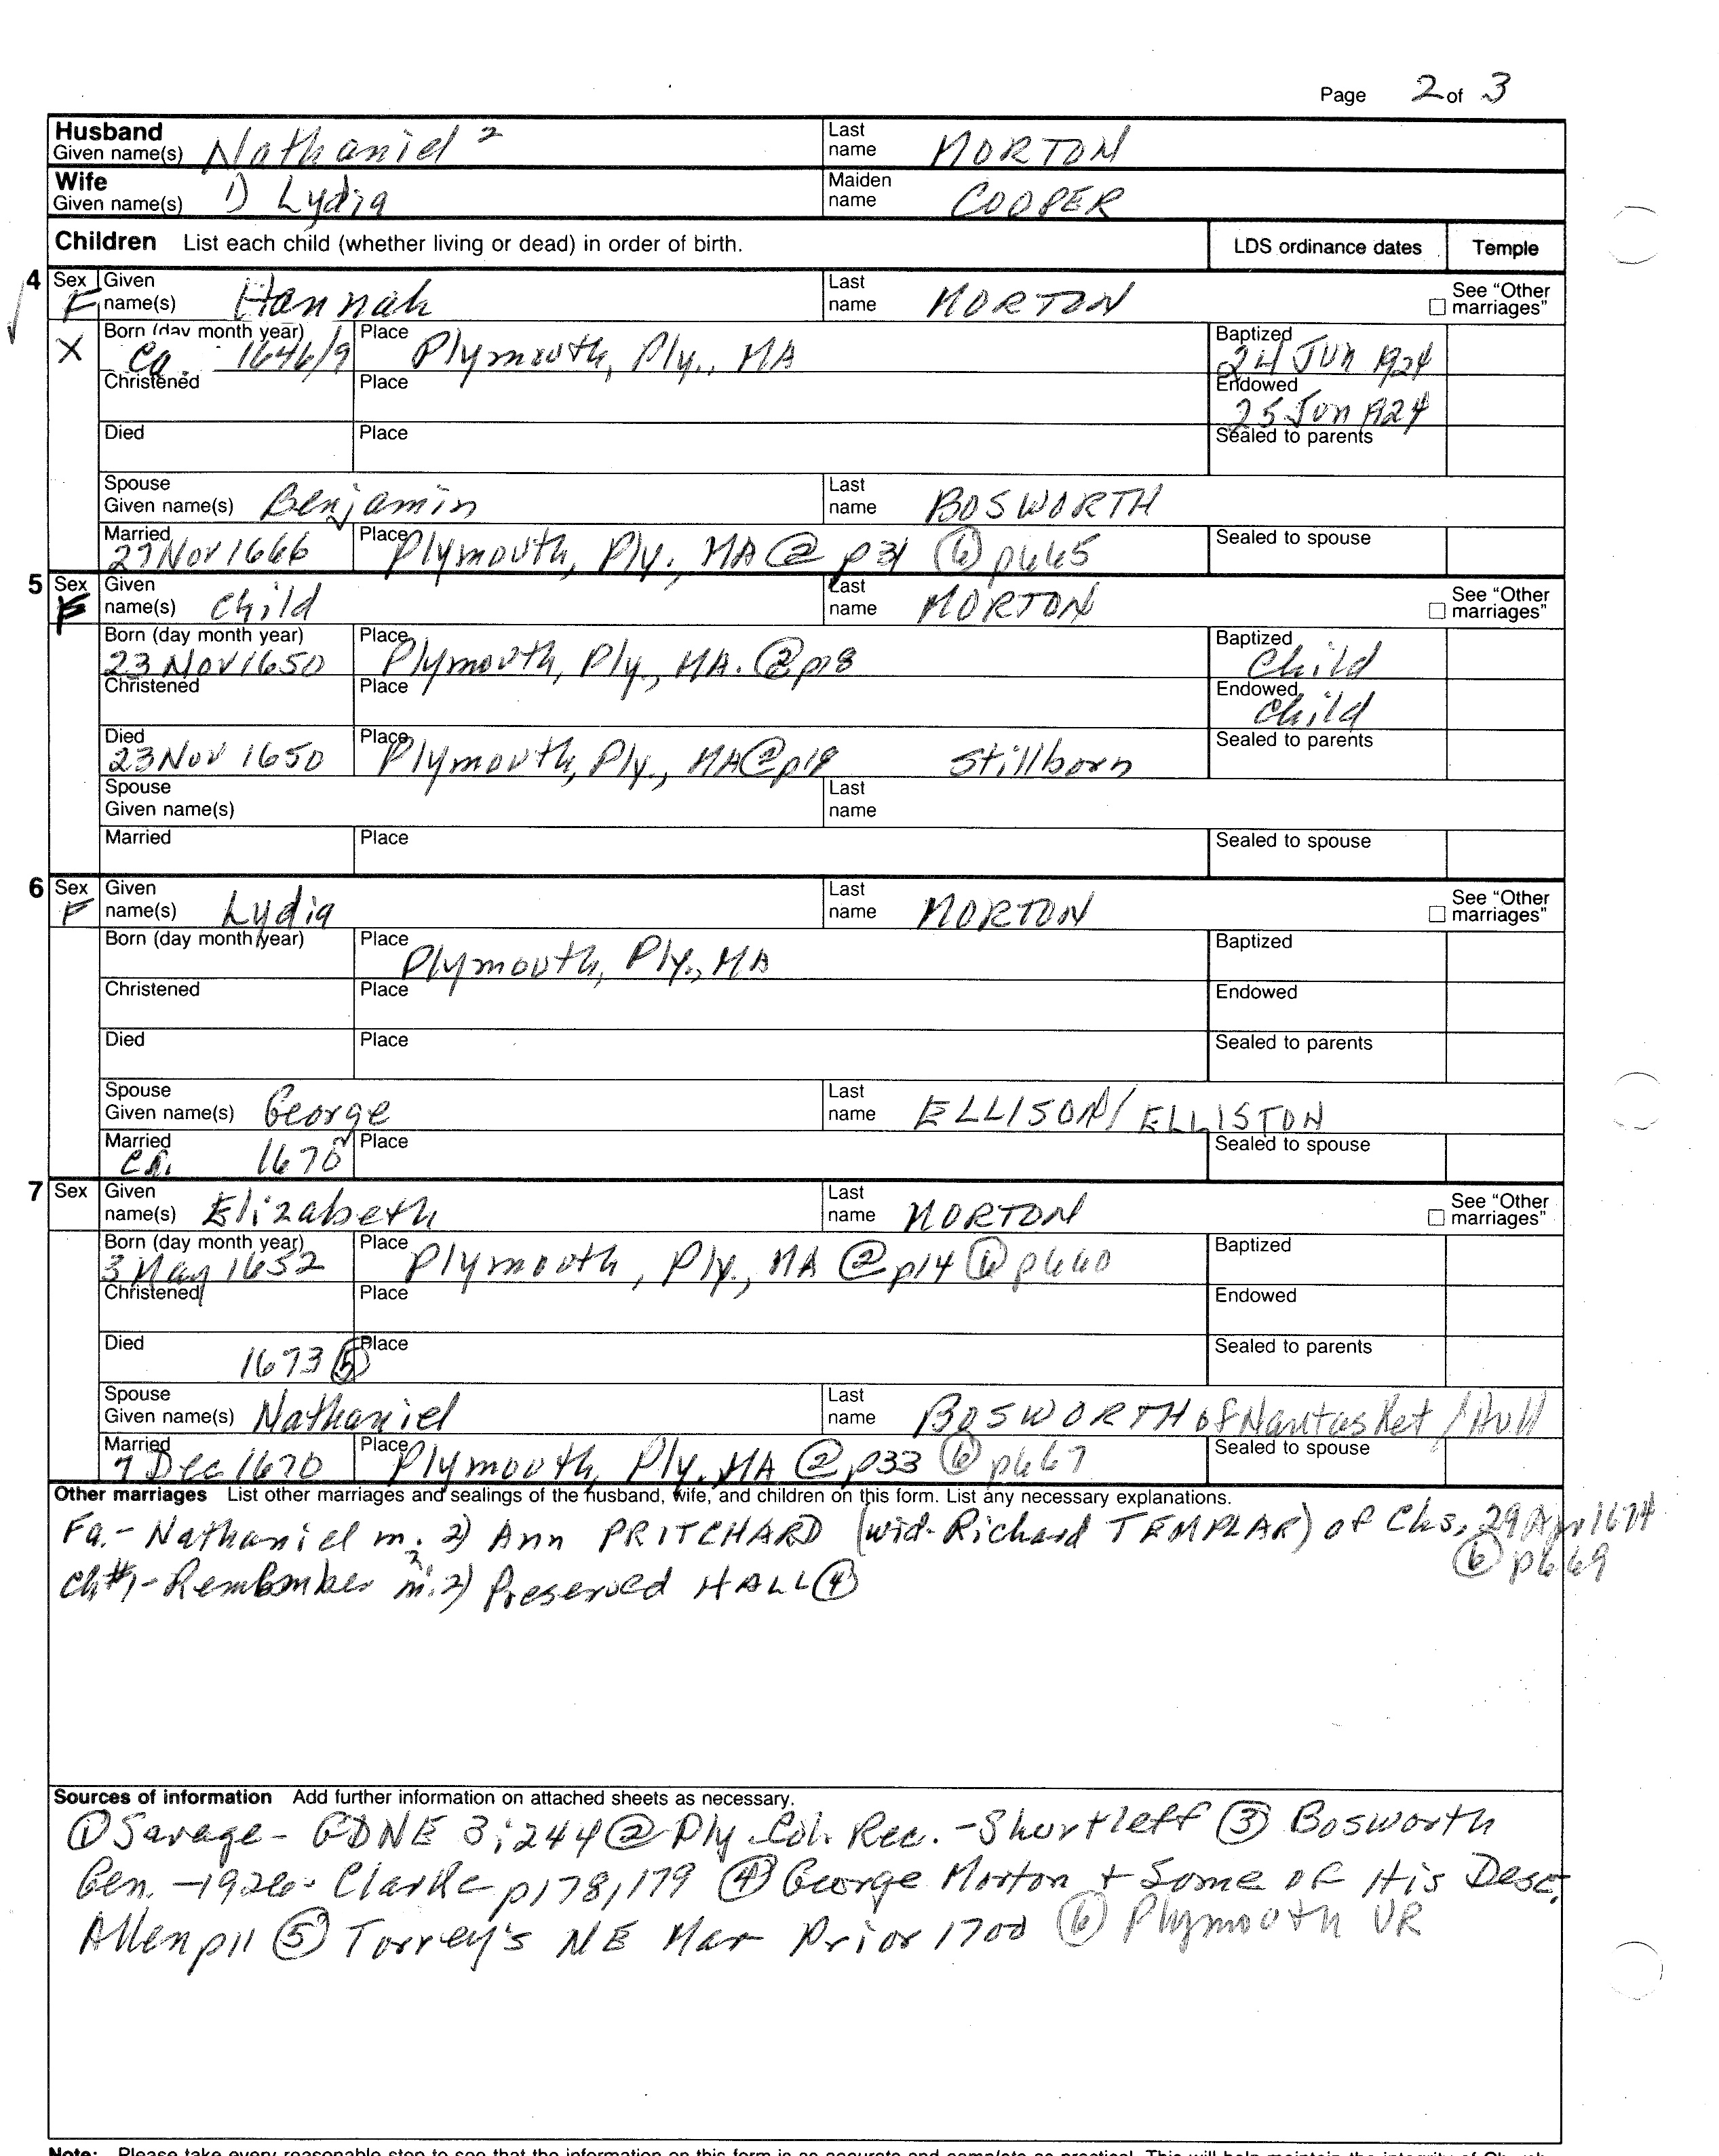 Page 2 of 3
Husband Given name(s) Nathaniel 2 Last name MORTON
Wife Given name(s) 1) Lydia Maiden name COOPER
Children List each child (whether living or dead) in order of birth. LDS ordinance dates Temple
4 Sex F Given name(s) Hannah Last name MORTON See "Other marriages"
X Born (day month year) Ca. 1646/9 Place Plymouth, Ply., MA Baptized 24 Jun 1924
Christened Place Endowed 25 Jun 1924
Died Place Sealed to parents
Spouse Given name(s) Benjamin Last name BOSWORTH
Married 27 Nov 1666 Place Plymouth, Ply., MA ② p31 ⑥ p665 Sealed to spouse
5 Sex F Given name(s) Child Last name MORTON See "Other marriages"
Born (day month year) 23 Nov 1650 Place Plymouth, Ply., MA. ② p18 Baptized Child
Christened Place Endowed Child
Died 23 Nov 1650 Place Plymouth, Ply., MA ② p18 Stillborn Sealed to parents
Spouse Given name(s) Last name
Married Place Sealed to spouse
6 Sex F Given name(s) Lydia Last name MORTON See "Other marriages"
Born (day month year) Place Plymouth, Ply., MA Baptized
Christened Place Endowed
Died Place Sealed to parents
Spouse Given name(s) George Last name ELLISON/ELLISTON
Married ca. 1670 Place Sealed to spouse
7 Sex Given name(s) Elizabeth Last name MORTON See "Other marriages"
Born (day month year) 3 May 1652 Place Plymouth, Ply., MA ② p14 ⑥ p660 Baptized
Christened Place Endowed
Died 1673 ⑤ Place Sealed to parents
Spouse Given name(s) Nathaniel Last name BOSWORTH of Nantasket / Hull
Married 7 Dec 1670 Place Plymouth, Ply. MA ② p33 ⑥ p667 Sealed to spouse
Other marriages List other marriages and sealings of the husband, wife, and children on this form. List any necessary explanations.
Fa.- Nathaniel m. 2) Ann PRITCHARD (wid- Richard TEMPLAR) of Chs, 29 Apr 1674
⑥ p669
Ch#1- Remember m. 2) Preserved HALL ④
Sources of information Add further information on attached sheets as necessary.
① Savage - GDNE 3:244 ② Ply Col. Rec. - Shurtleff ③ Bosworth
Gen. - 1926 - Clarke p178,179 ④ George Morton + Some of His Desc,
Allen p11 ⑤ Torrey's NE Mar Prior 1700 ⑥ Plymouth VR
Note: Please take every reasonable step to see that the information on this form is as accurate and complete as practical. This will help maintain the integrity of Church